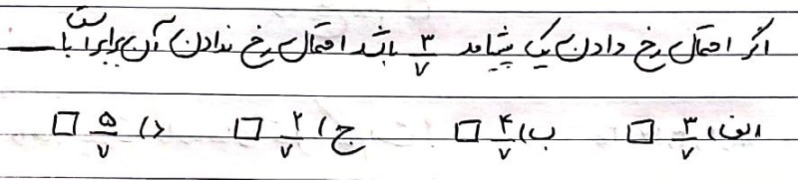 اگر احتمال رخ دادن یک پیشامد ۳/۷ باشد احتمال رخ ندادن آن برابر است با ــــ
الف) ۳/۷ □ ب) ۴/۷ □ ج) ۲/۷ □ د) ۵/۷ □